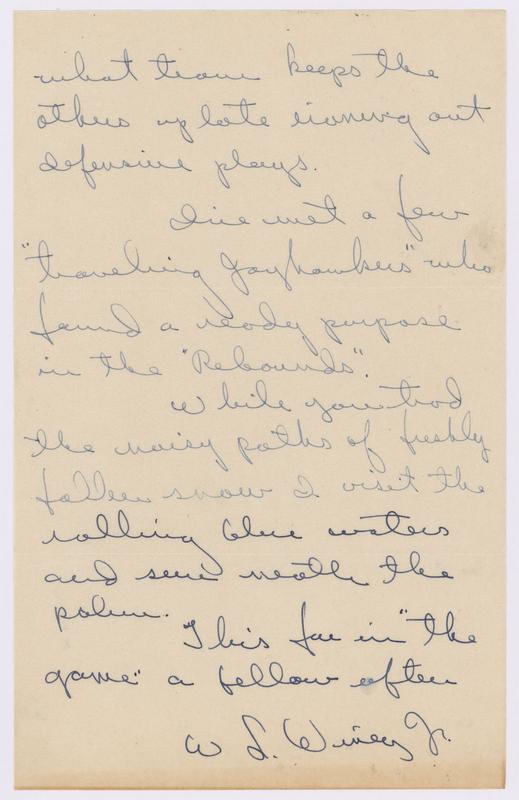 what team keeps the
others up late ironing out
defensive plays.
I've met a few
"traveling Jayhawkers" who
found a ready purpose
in the "Rebounds".
While you trod
the noisy paths of freshly
fallen snow I visit the
rolling blue waters
and swim neath the
palm.
This far in "the
game" a fellow often
W L. Jr.